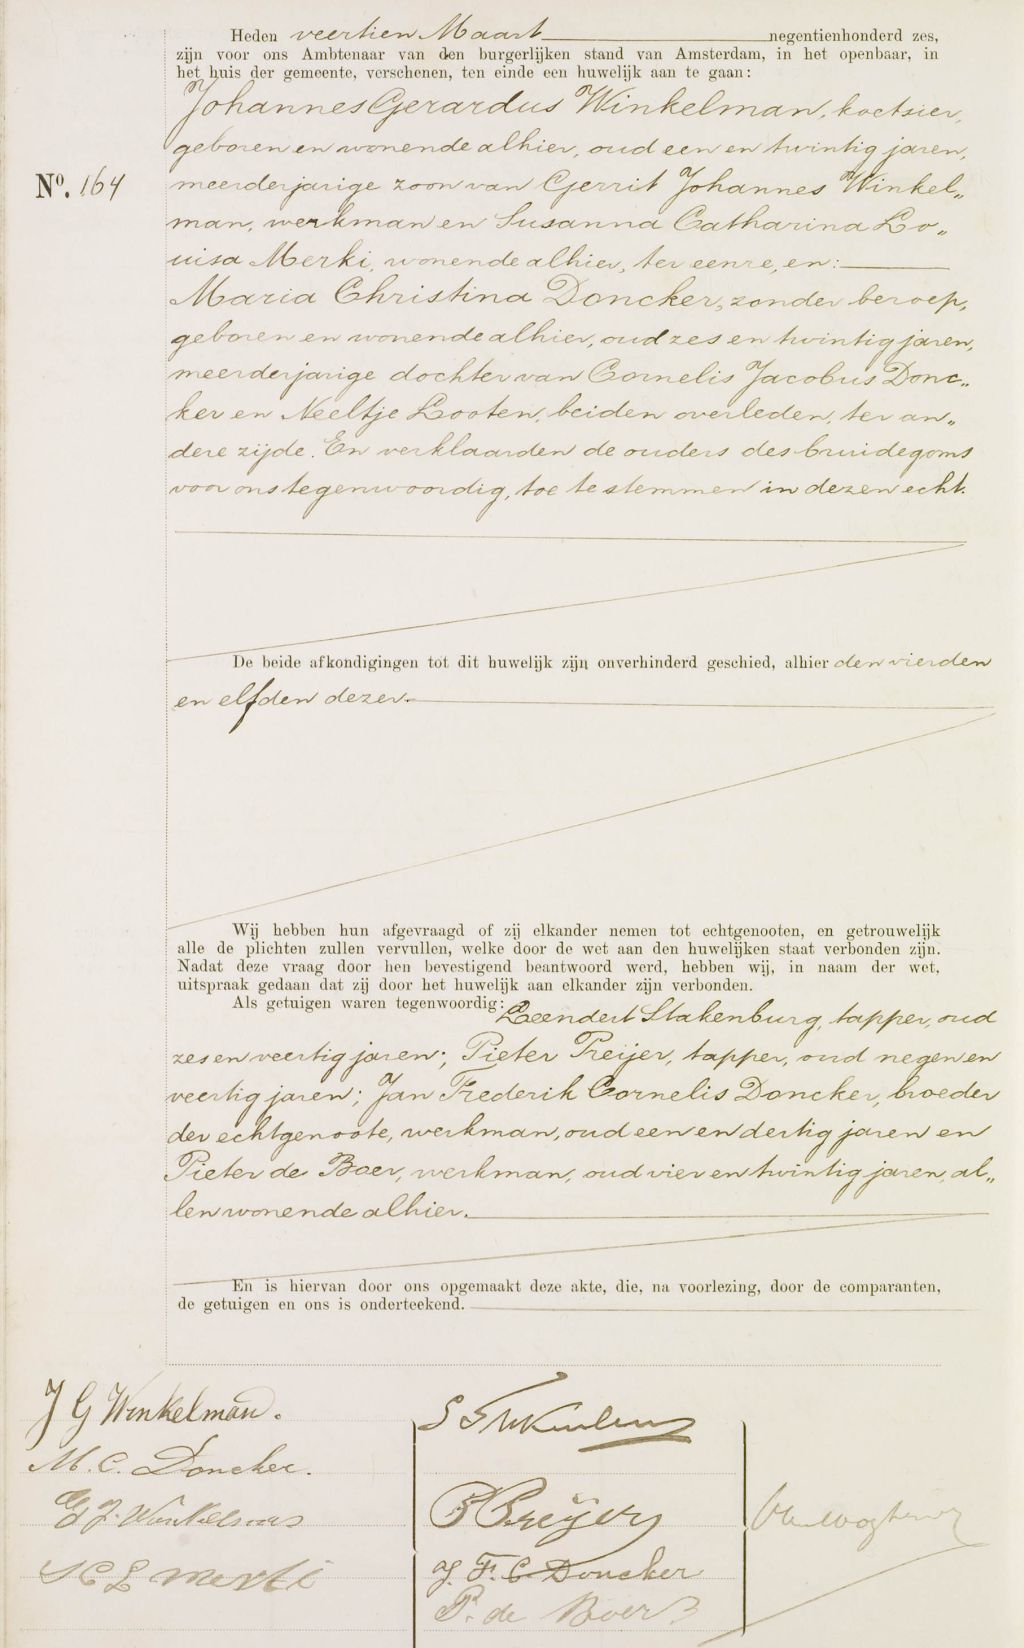 Heden veertien Maart negentienhonderd zes,
zijn voor ons Ambtenaar van den burgerlijken stand van Amsterdam, in het openbaar, in
het huis der gemeente, verschenen, ten einde een huwelijk aan te gaan:
Johannes Gerardus Winkelman, koetsier,
geboren en wonende alhier, oud een en twintig jaren,
Nº. 164 meerderjarige zoon van Gerrit Johannes Winkel„
man, werkman en Susanna Catharina Lo„
uisa Merki, wonende alhier, ter eenre, en:
Maria Christina Doncker, zonder beroep,
geboren en wonende alhier, oud zes en twintig jaren,
meerderjarige dochter van Cornelis Jacobus Donc„
ker en Neeltje Looten, beiden overleden, ter an„
dere zijde. En verklaarden de ouders des bruidegoms
voor ons tegenwoordig, toe te stemmen in dezen echt.
De beide afkondigingen tot dit huwelijk zijn onverhinderd geschied, alhier den vierden
en elfden dezer.
Wij hebben hun afgevraagd of zij elkander nemen tot echtgenooten, en getrouwelijk
alle de plichten zullen vervullen, welke door de wet aan den huwelijken staat verbonden zijn.
Nadat deze vraag door hen bevestigend beantwoord werd, hebben wij, in naam der wet,
uitspraak gedaan dat zij door het huwelijk aan elkander zijn verbonden.
Als getuigen waren tegenwoordig: Leendert Stakenburg, tapper, oud
zes en veertig jaren; Pieter Preijer, tapper, oud negen en
veertig jaren; Jan Frederik Cornelis Doncker, broeder
der echtgenoote, werkman, oud een en dertig jaren en
Pieter de Boer, werkman, oud vier en twintig jaren, al„
len wonende alhier.
En is hiervan door ons opgemaakt deze akte, die, na voorlezing, door de comparanten,
de getuigen en ons is onderteekend.
J G Winkelman.
M. C. Doncker.
G J. Winkelman
S C L Merki
P Preijer
J. F. C. Doncker
P. de Boer